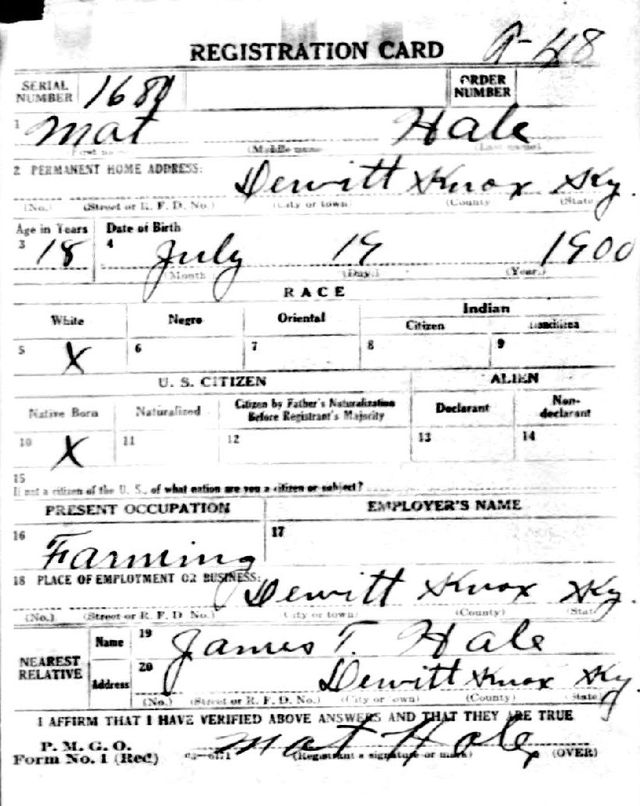 REGISTRATION CARD
SERIAL NUMBER
ORDER NUMBER
1 Mat Hale
(Middle name (Last name)
2 PERMANENT HOME ADDRESS: Dewitt Knox Ky.
(No.) (Street or R. F. D. No.) (City or town) (County (State
Age in Years Date of Birth
3 18 4 July 19 1900
(Month (Day.) (Year.)
RACE
White Negro Oriental Indian
Citizen
5 X 6 7 8 9
U. S. CITIZEN ALIEN
Native Born Naturalized Citizen by Father's Naturalization Before Registrant's Majority Declarant Non-declarant
10 X 11 12 13 14
15
If not a citizen of the U. S., of what nation are you a citizen or subject?
PRESENT OCCUPATION EMPLOYER'S NAME
16 Farming 17
18 PLACE OF EMPLOYMENT OR BUSINESS: Dewitt Knox Ky.
(No.) (Street or R. F. D No.) (City or town) (County) (State
NEAREST RELATIVE
Name 19 James T. Hale
Address 20 Dewitt Knox Ky
(No.) (Street or R. F. D. No.) (City or town) (County) (State)
I AFFIRM THAT I HAVE VERIFIED ABOVE ANSWERS AND THAT THEY ARE TRUE
P. M. G. O.
Form No. 1 (Red) Mat Hale
(Registrant's signature or mark) (OVER)